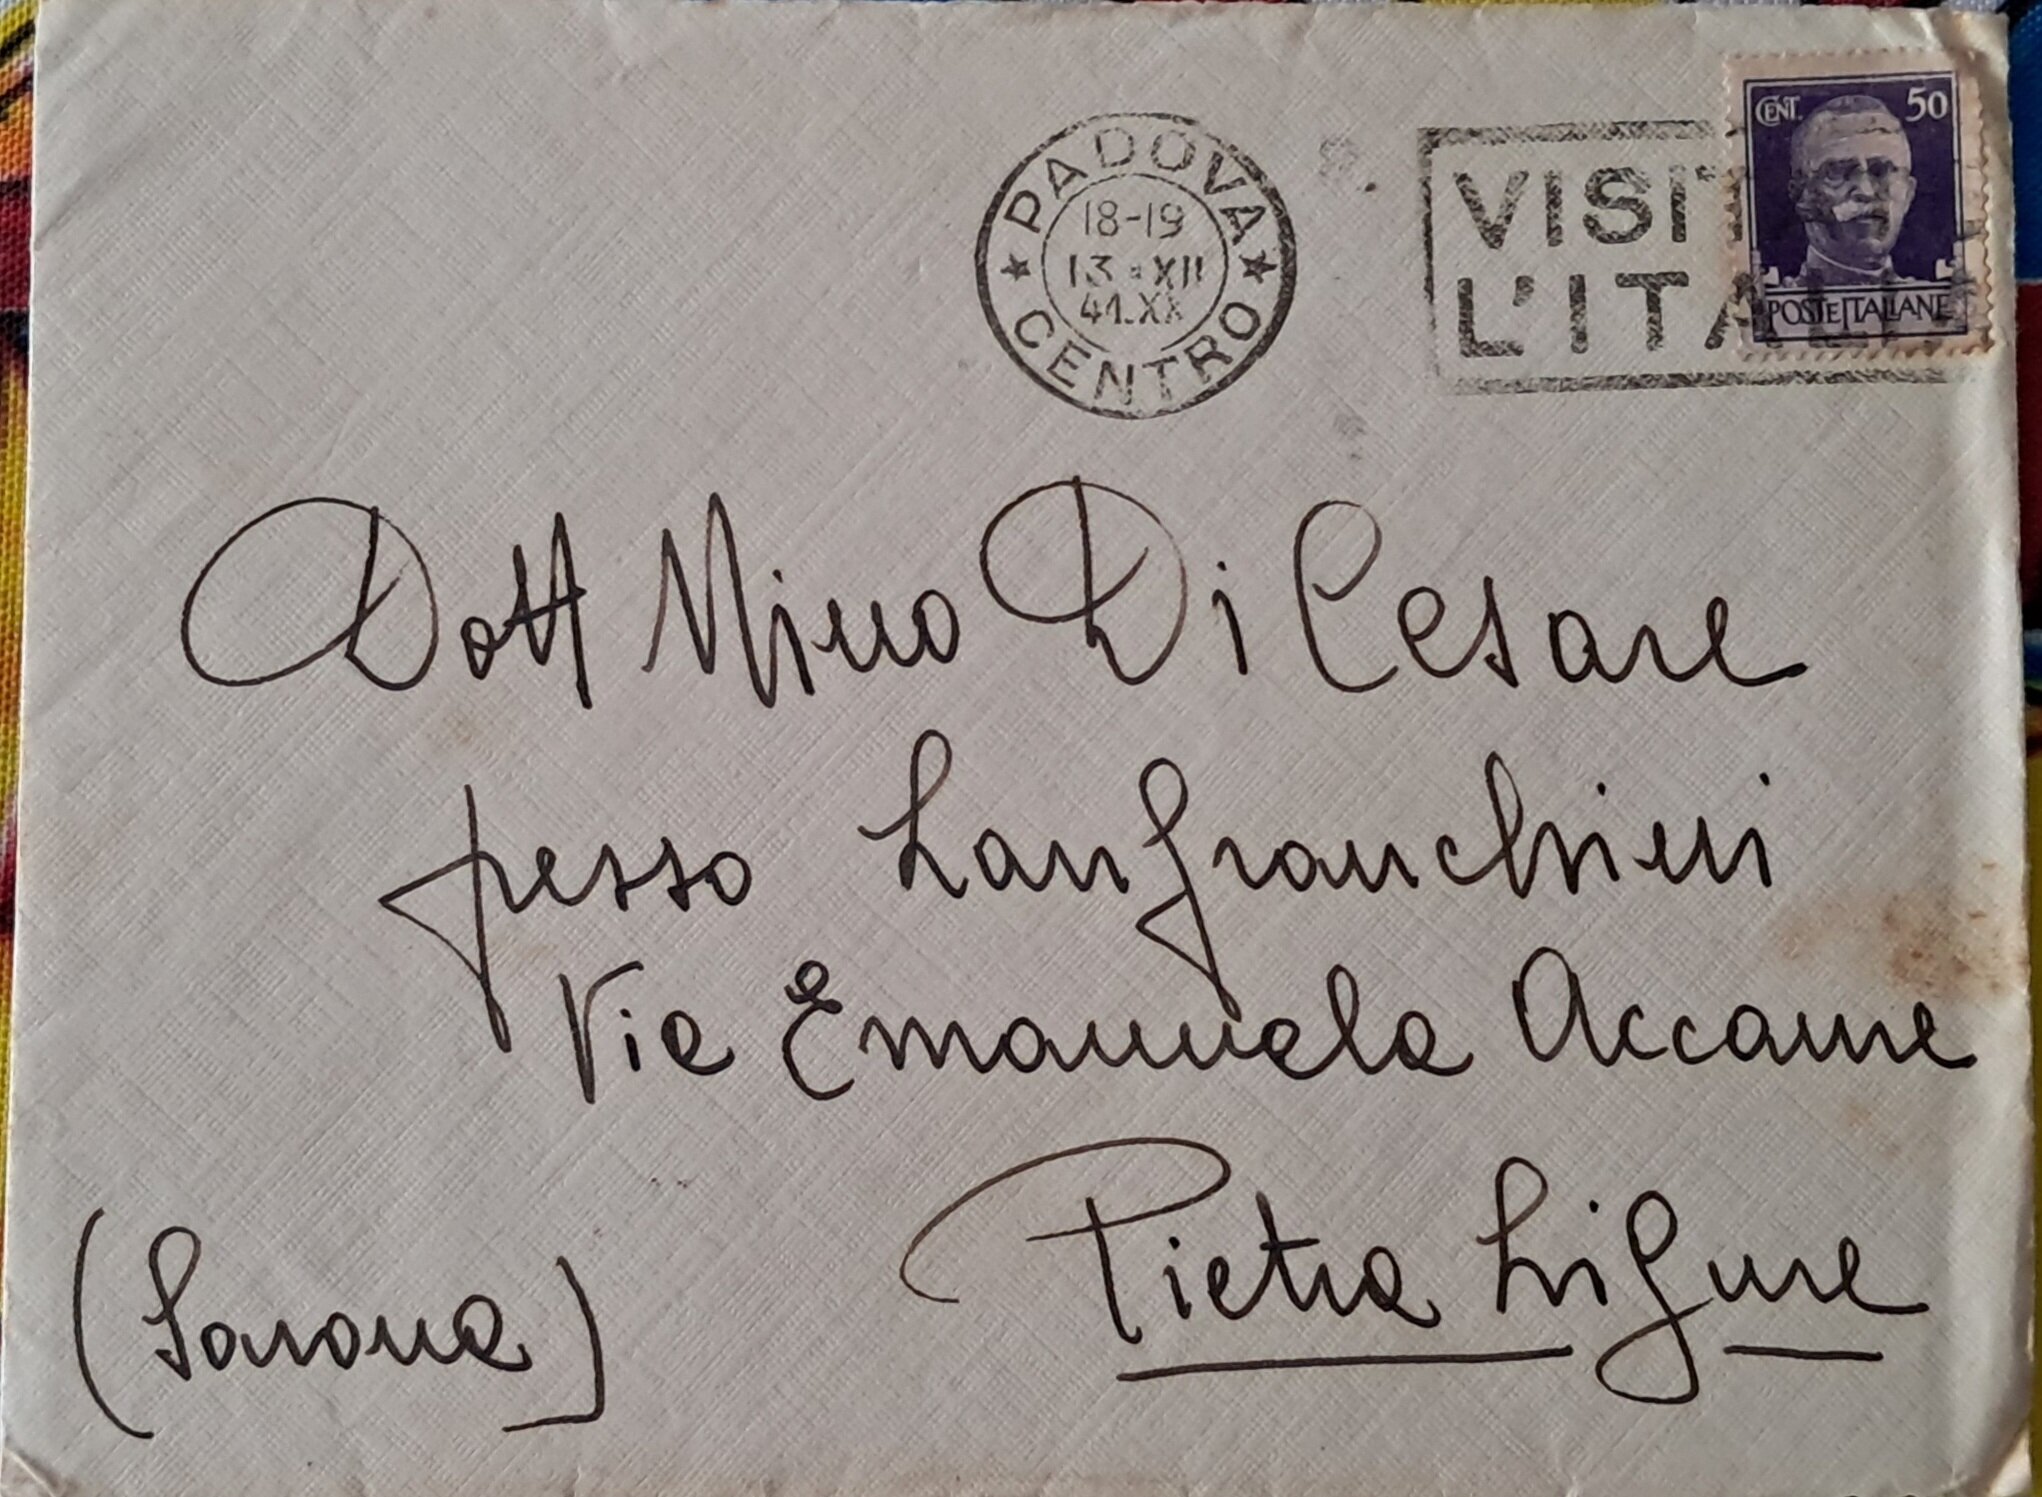 PADOVA
18-19
13·XII
41.XX
CENTRO
VISIT
L'ITA
CENT. 50
POSTE ITALIANE
Dott Nino Di Cesare
presso Lanfranchini
Via Emanuele Accame
Pietra Ligure
(Savona)